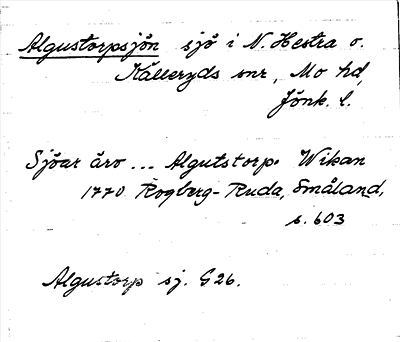 Algustorpsjön sjö i N. Hestra o.
Kålleryds snr, Mo hd,
Jönk. l.
Sjöar äro ... Algutstorps Wikan
1770 Rogberg-Ruda, Småland,
s. 603
Algustorp sj. G26.